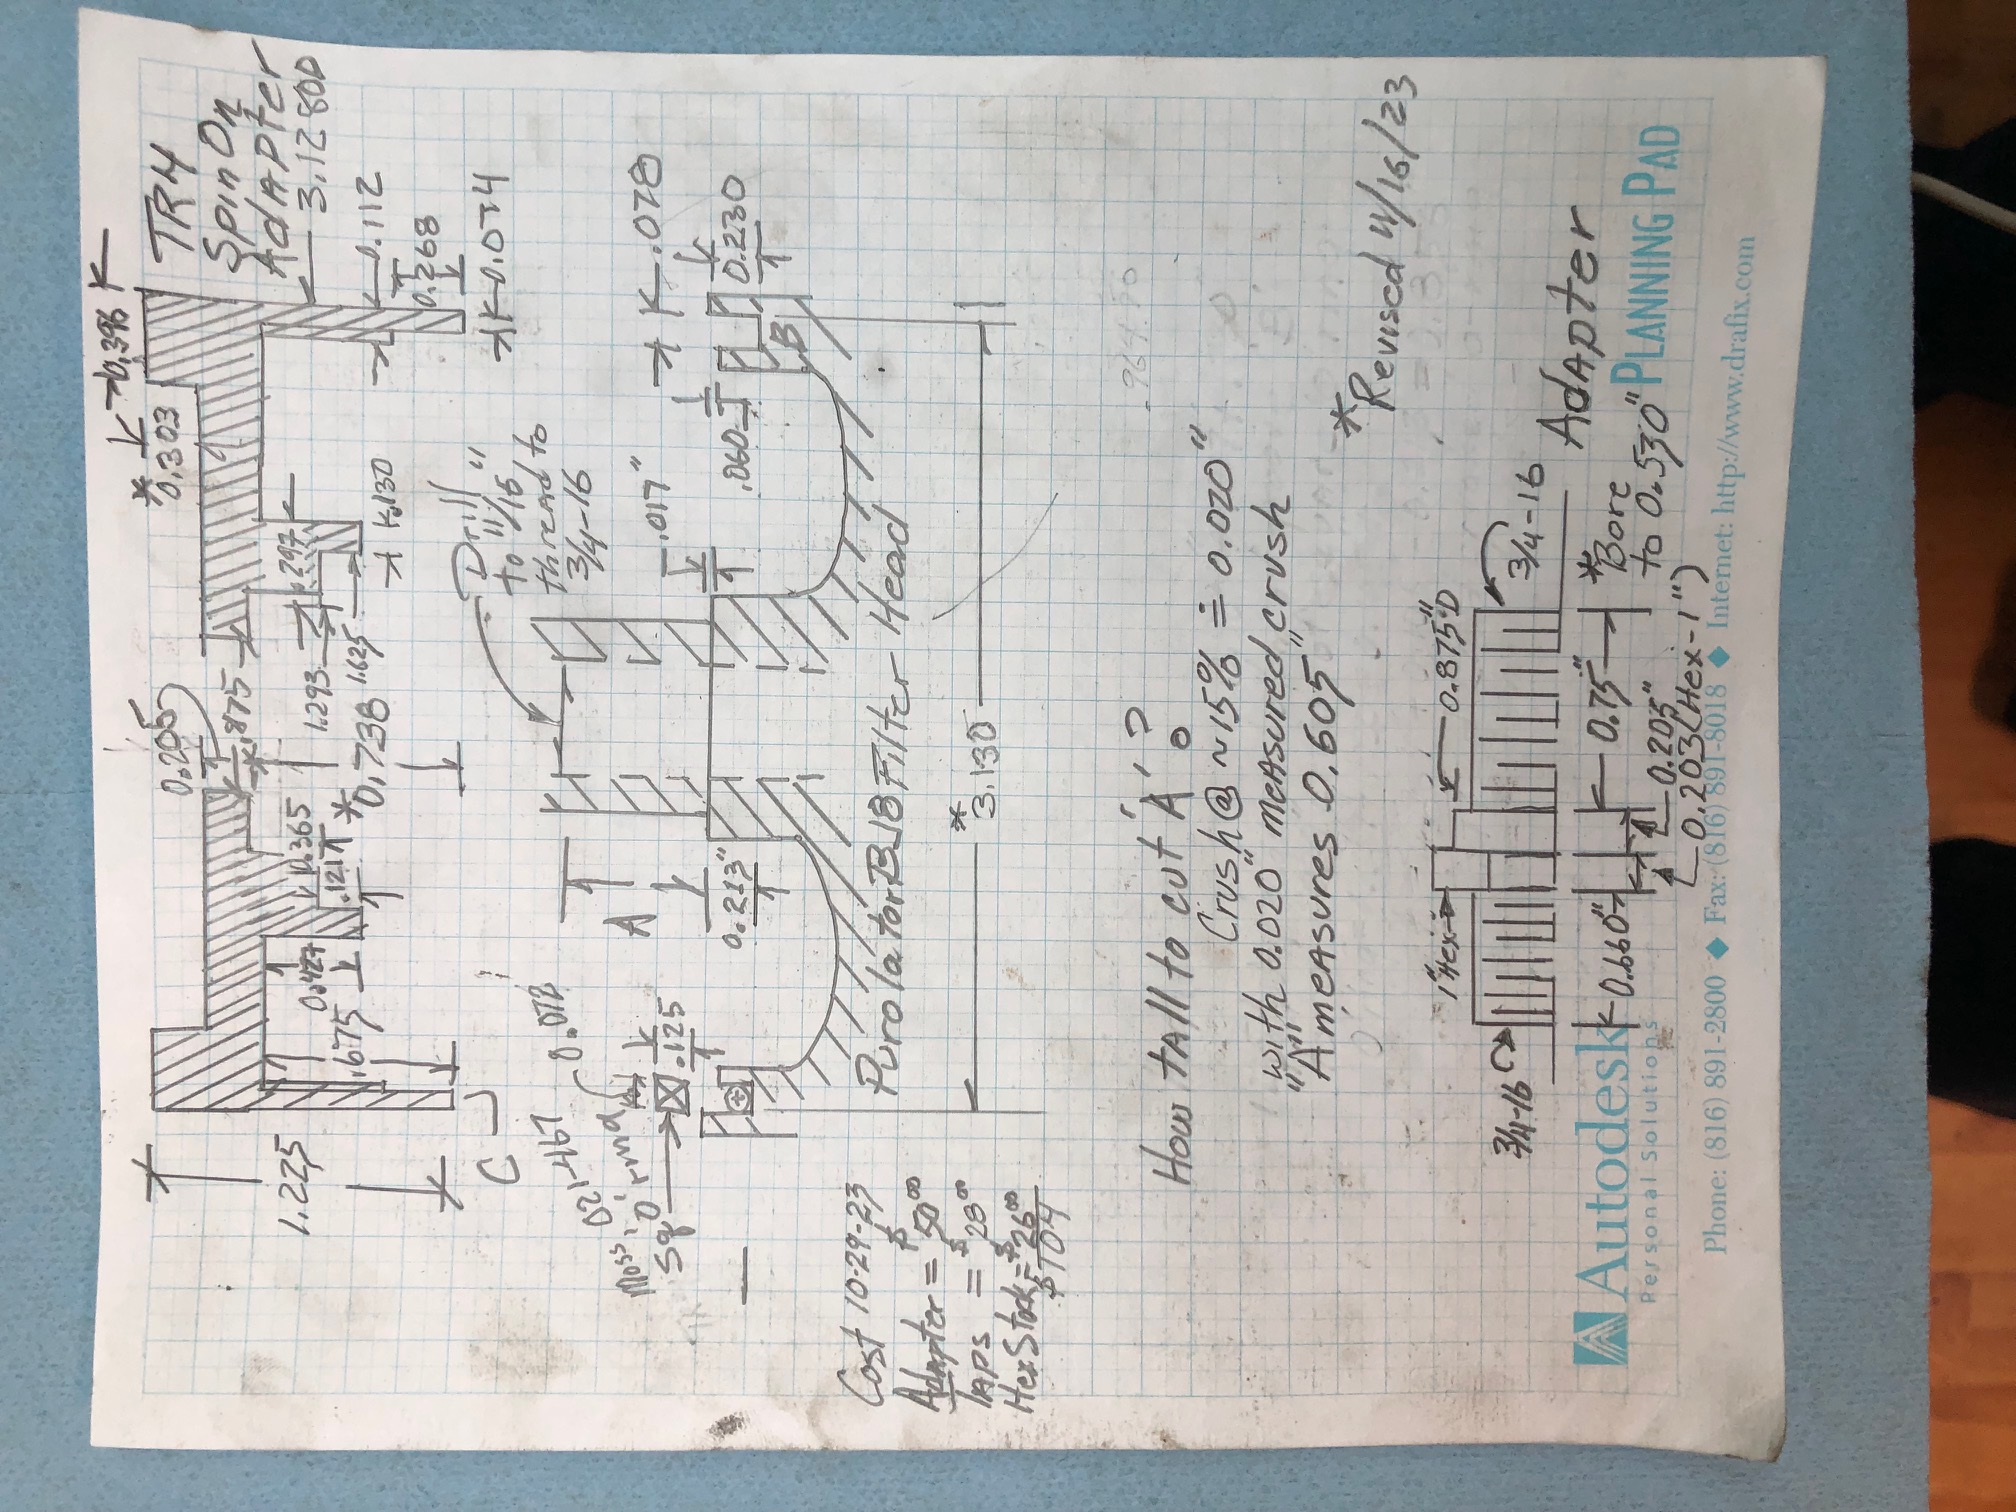 TR4
Spin On
Adapter
3.128OD
0.396
* 0.303
0.112
0.268
0.074
0.205
.875
*
.297
.130
1.293
1.625
0.365
.121
* 0.738
0.427
.675
1.225
C
Drill
to 11/16"
thread to
3/4-16
.017"
.078
0.230
.060
B
A
0.213"
0.078
.125
Moss
021-467
sq 'o' rmd
Purolator B18 Filter Head
* 3.130
Cost 10-29-23
Adapter = $50⁰⁰
Taps = $28⁰⁰
Hex Stock = $26⁰⁰
$104
.964.90
How tall to cut 'A'?
Crush @ ~15% ≐ 0.020"
with 0.020" measured crush
"A" measures 0.605"
* Revised 11/16/23
1" Hex
0.875"D
3/4-16
3/4-16
Adapter
0.660"
0.75"
* Bore
to 0.530"
0.205"
0.203 (Hex-1")
Autodesk
Personal Solutions
PLANNING PAD
Phone: (816) 891-2800 ◆ Fax: (816) 891-8018 ◆ Internet: http://www.drafix.com